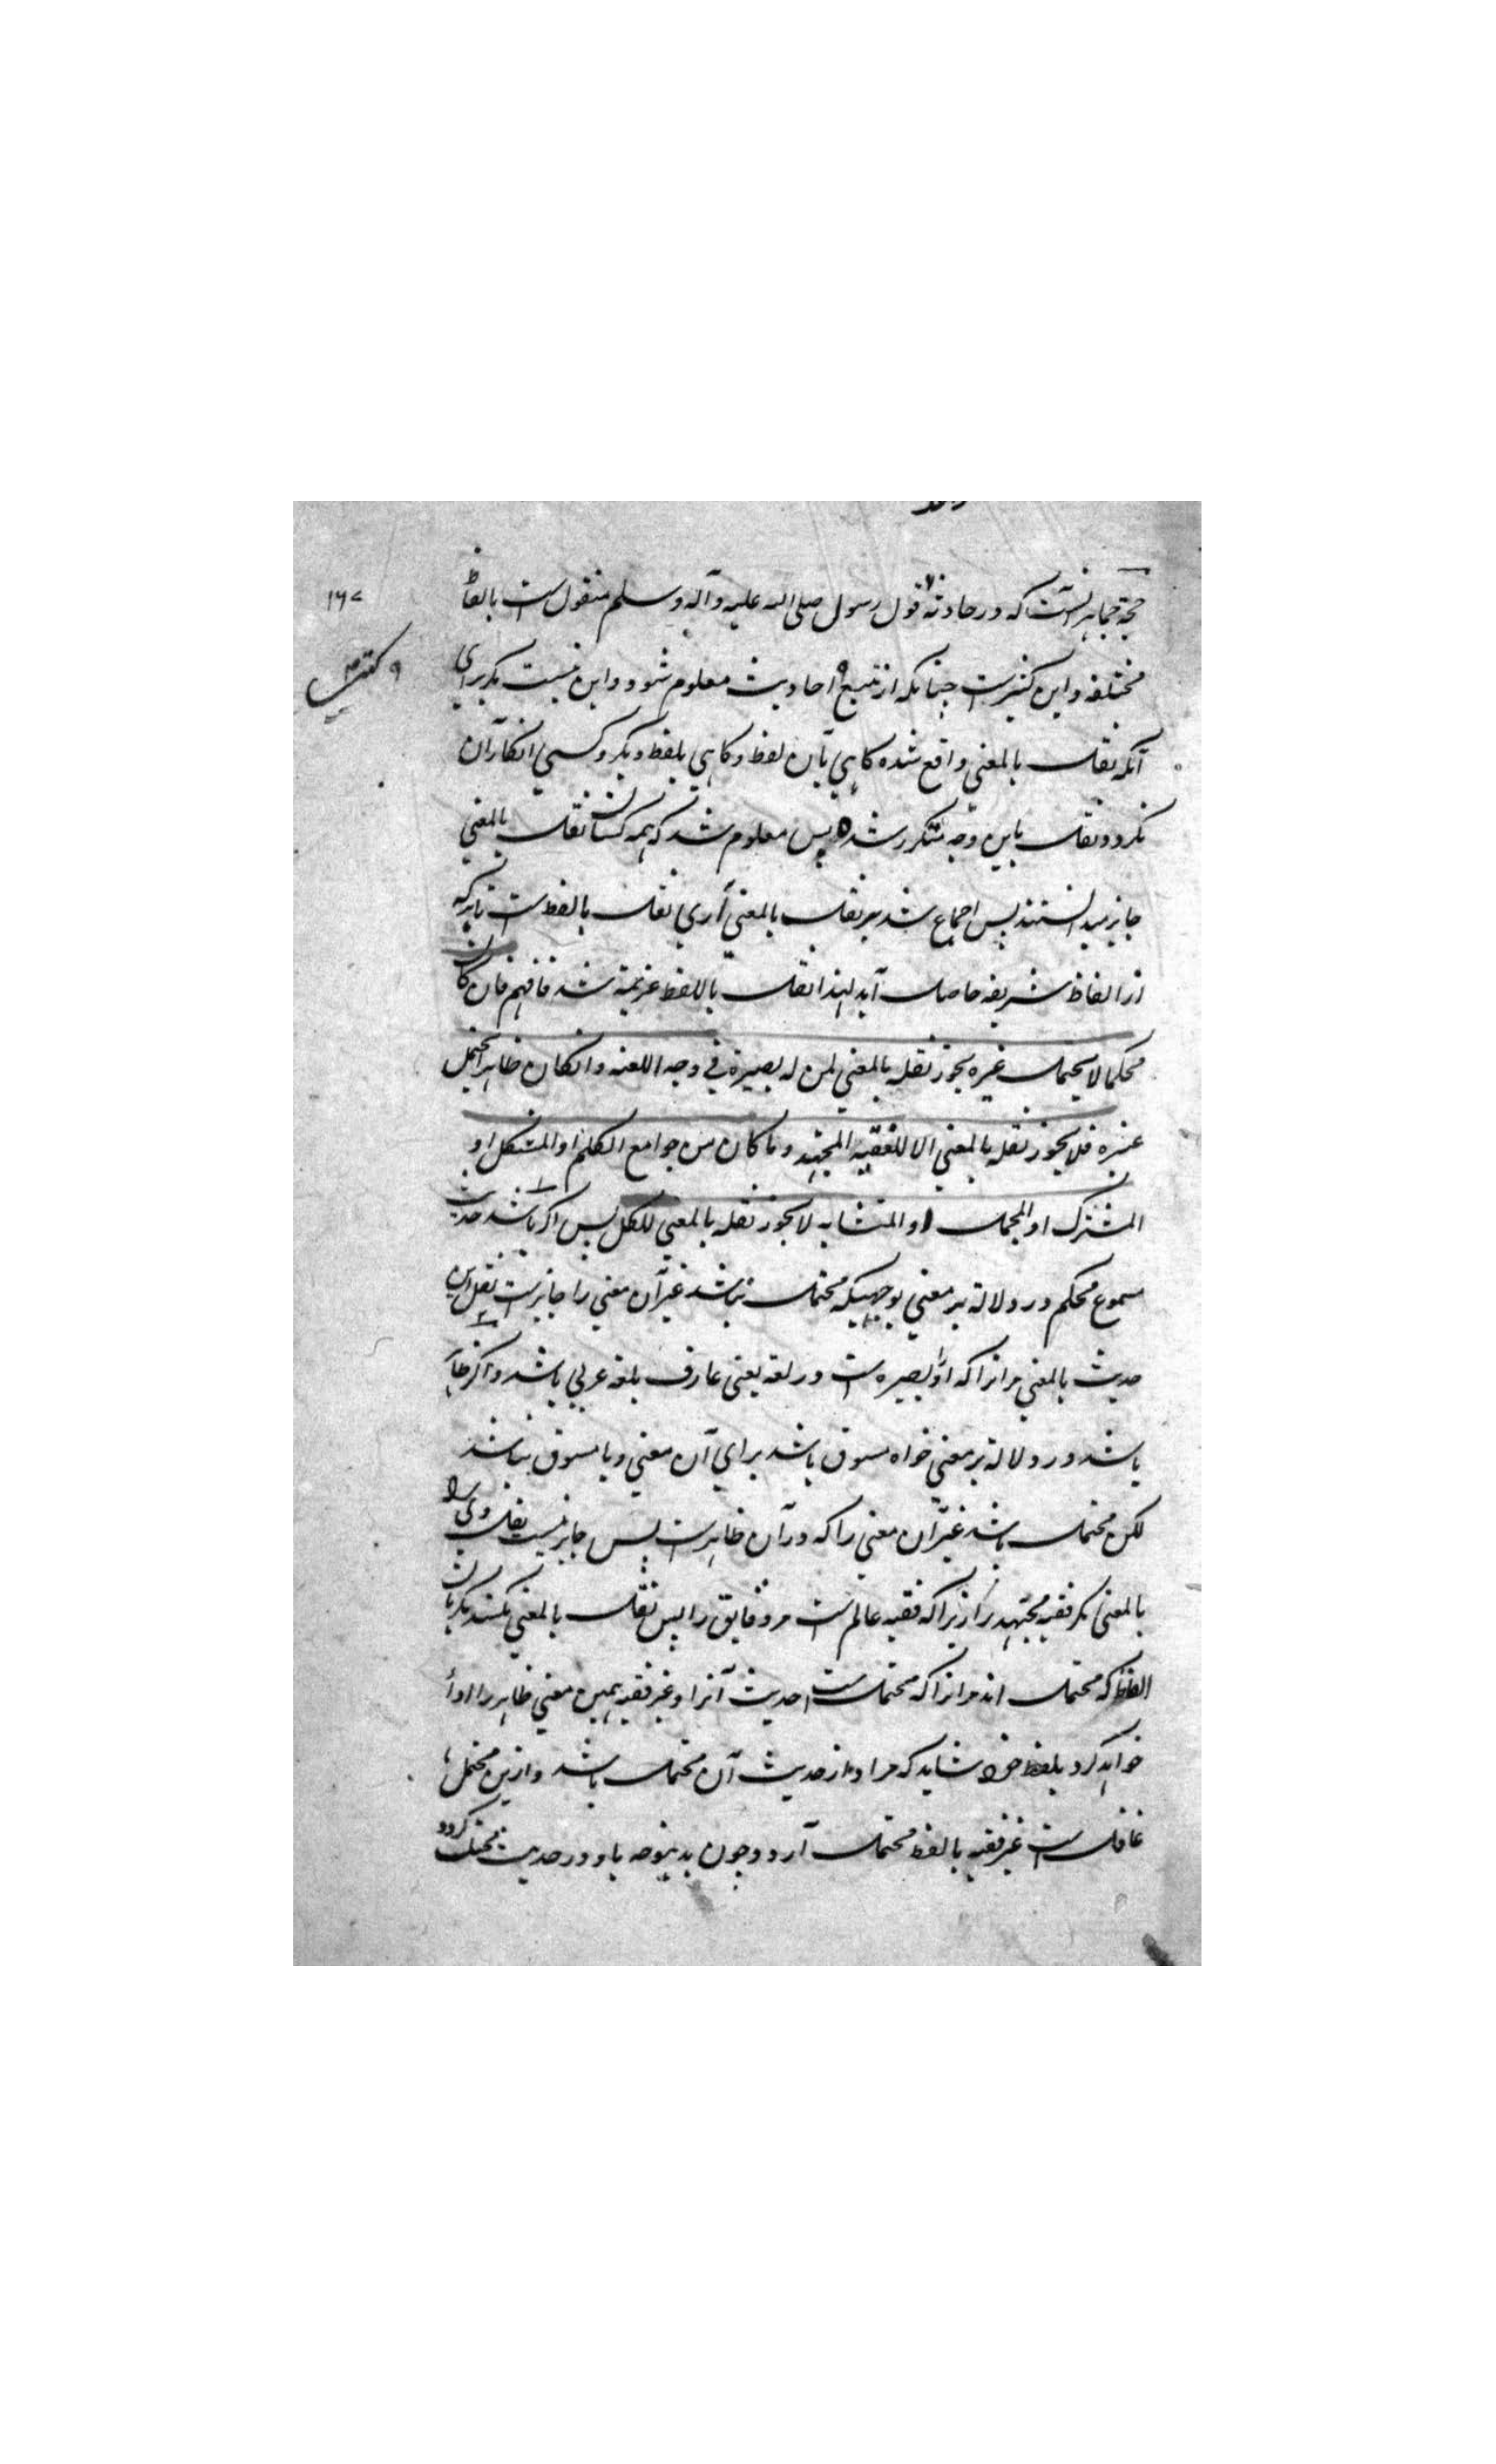 حجة جماهیر آنست که در حادثه قول رسول صلی الله علیه وآله وسلم منقول ست بالفاظ
مختلفه و این کثیرست چنانکه از تتبع احادیث معلوم شود و این نیست مگر برای
آنکه نقل بالمعنی واقع شده کاهی بآن لفظ و کاهی بلفظ دیکر و کسی انکار آن
نکرد و نقل باین وجه متکرر شده پس معلوم شد که همه کسان نقل بالمعنی
جایز میدانستند پس اجماع شد بر نقل بالمعنی آری نقل بالفظ ست تا برکه
از الفاظ شریفه حاصل آید لهذا نقل باللفظ عزیمة شد فافهم فان کان
محکما لا یحتمل غیره یجوز نقله بالمعنی لمن له بصیرة فی وجه اللغه و انکان ظاهرا یحتمل
غیره فلا یجوز نقله بالمعنی الا للفقیه المجتهد و ما کان من جوامع الکلم او المشکل او
المشترک او المجمل او المتشابه لا یجوز نقله بالمعنی للکل پس اکر باشد حدیث
مسموع محکم در دلالة بر معنی بوجهیکه محتمل نباشد غیر آن معنی را جایزست نقل این
حدیث بالمعنی مرانرا که او را بصیره ست در لغه یعنی عارف بلغه عربی باشد و اکر ظاهر
باشد در دلالة بر معنی خواه مسوق باشد برای آن معنی و یا مسوق نباشد
لکن محتمل باشد غیر آن معنی را که در آن ظاهرست پس جایز نیست نقل وی
بالمعنی مکر فقیه مجتهد را زیرا که فقیه عالم ست مر دقایق را پس نقل بالمعنی نکند مکر بآن
الفاظ که محتمل اند مرانرا که محتمل ست حدیث آنرا و غیر فقیه همین معنی ظاهر را ادا
خواهد کرد بلفظ خود شاید که مراد از حدیث آن محتمل باشد و ازین محتمل
غافل ست غیر فقیه بالفظ محتمل آرد و چون بدینوجه یاد در حدیث محتمل کردد
۱۶۷